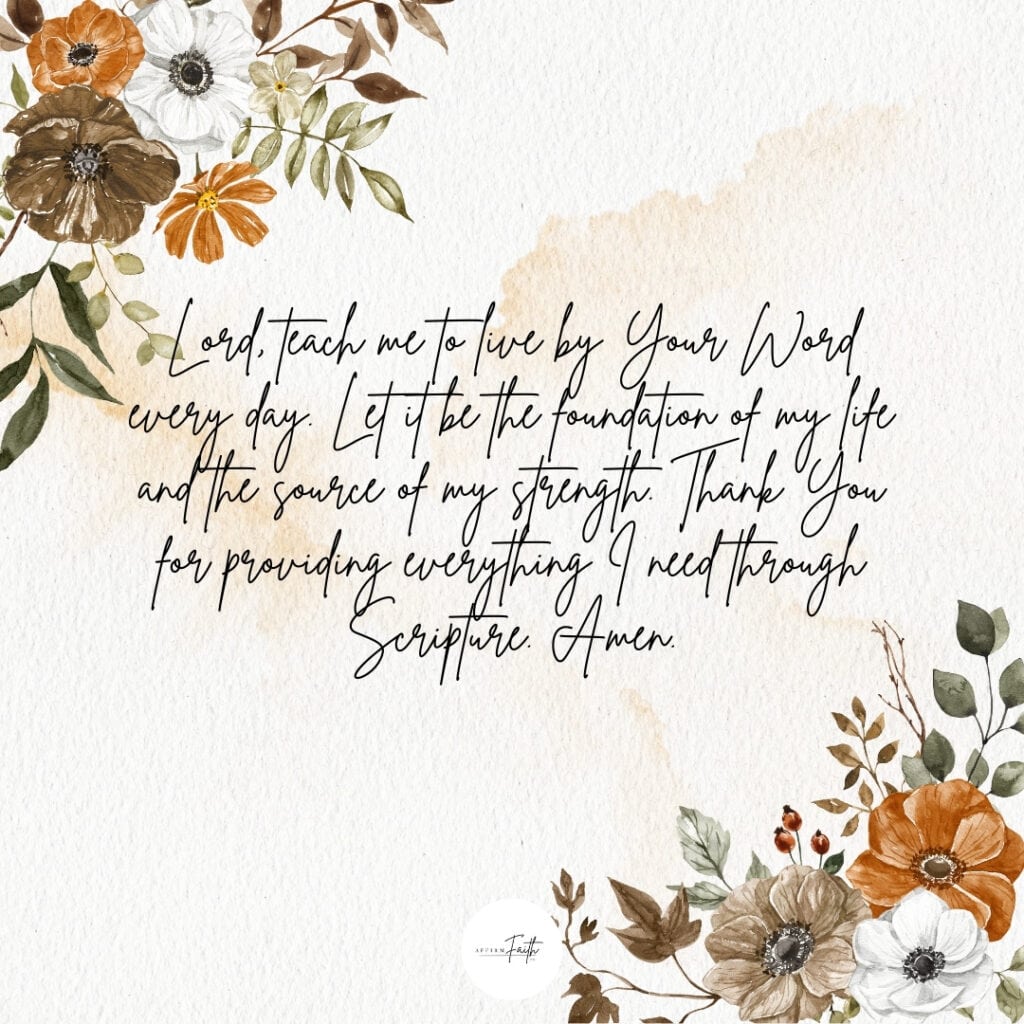 Lord, teach me to live by Your Word
every day. Let it be the foundation of my life
and the source of my strength. Thank You
for providing everything I need through
Scripture. Amen.
AFFIRM Faith